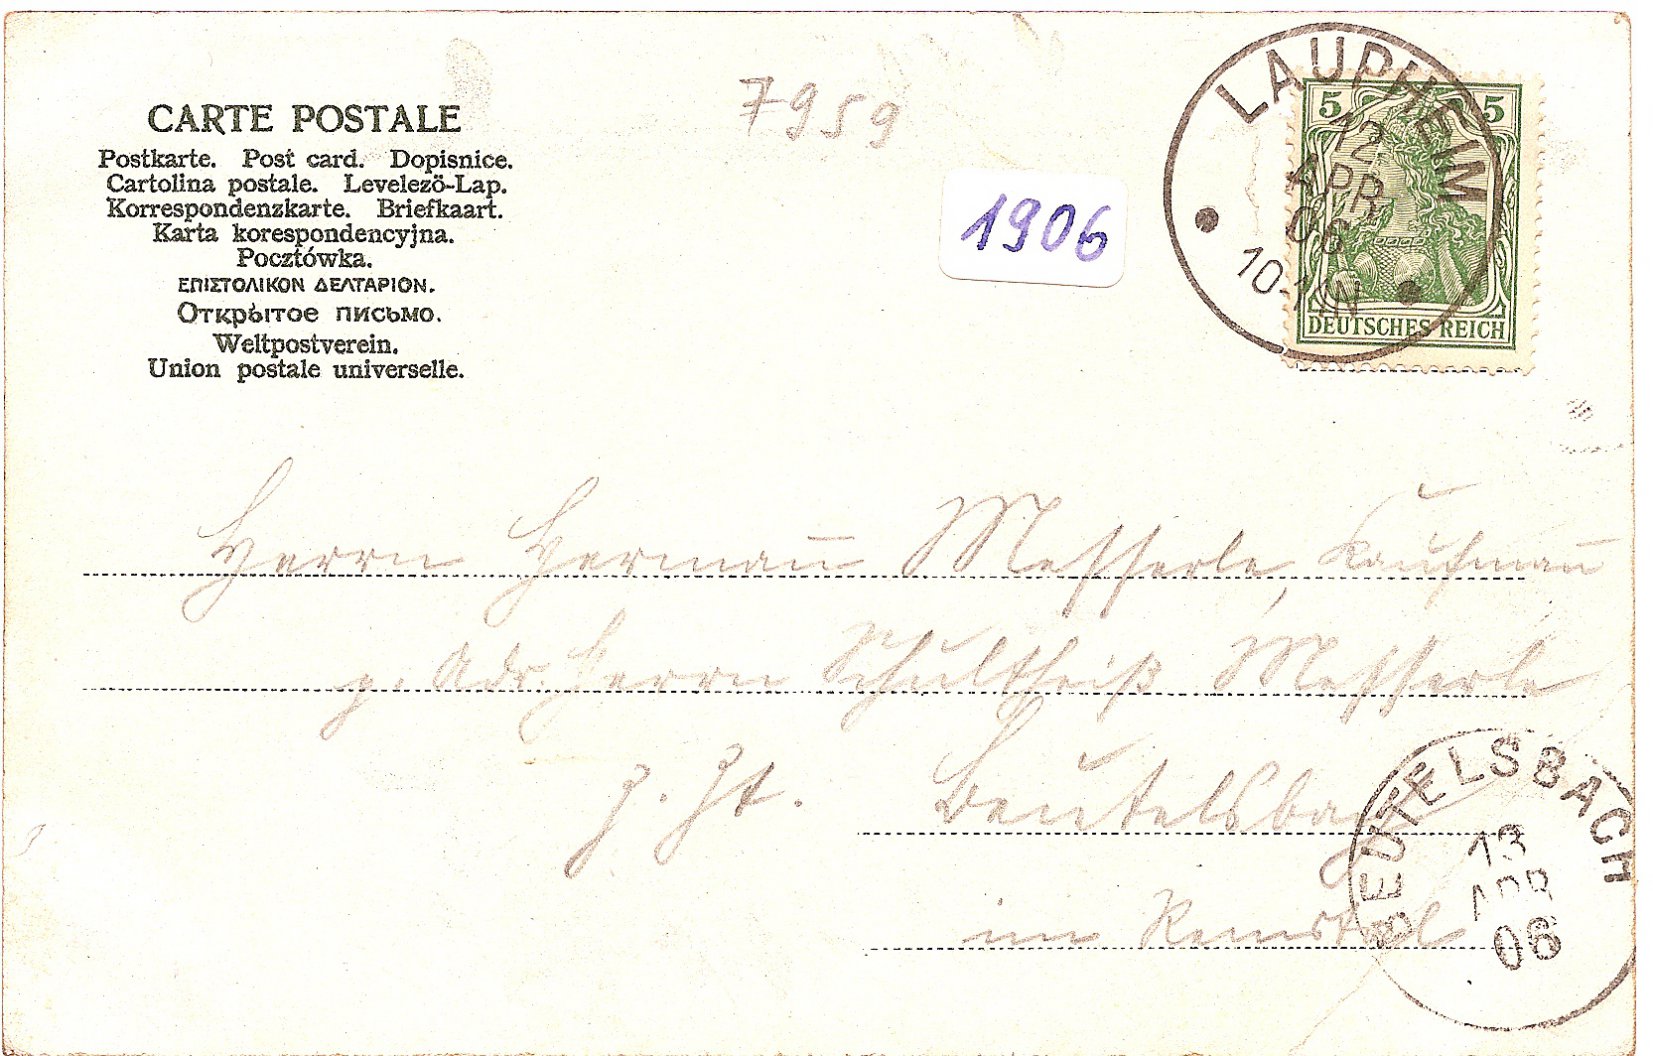 CARTE POSTALE
Postkarte. Post card. Dopisnice.
Cartolina postale. Levelezö-Lap.
Korrespondenzkarte. Briefkaart.
Karta korespondencyjna.
Pocztówka.
ΕΠΙΣΤΟΛΙΚΟΝ ΔΕΛΤΑΡΙΟΝ.
Открытое письмо.
Weltpostverein.
Union postale universelle.
7959
1906
LAUPHEIM
12
APR
06
10-11N
5 5
DEUTSCHES REICH
Herrn Hermann Messerle, Kaufmann
p. Adr. Herrn Schultheiß Messerle
z. Zt. Beutelsbach
im Remstal
BEUTELSBACH
13
APR
06